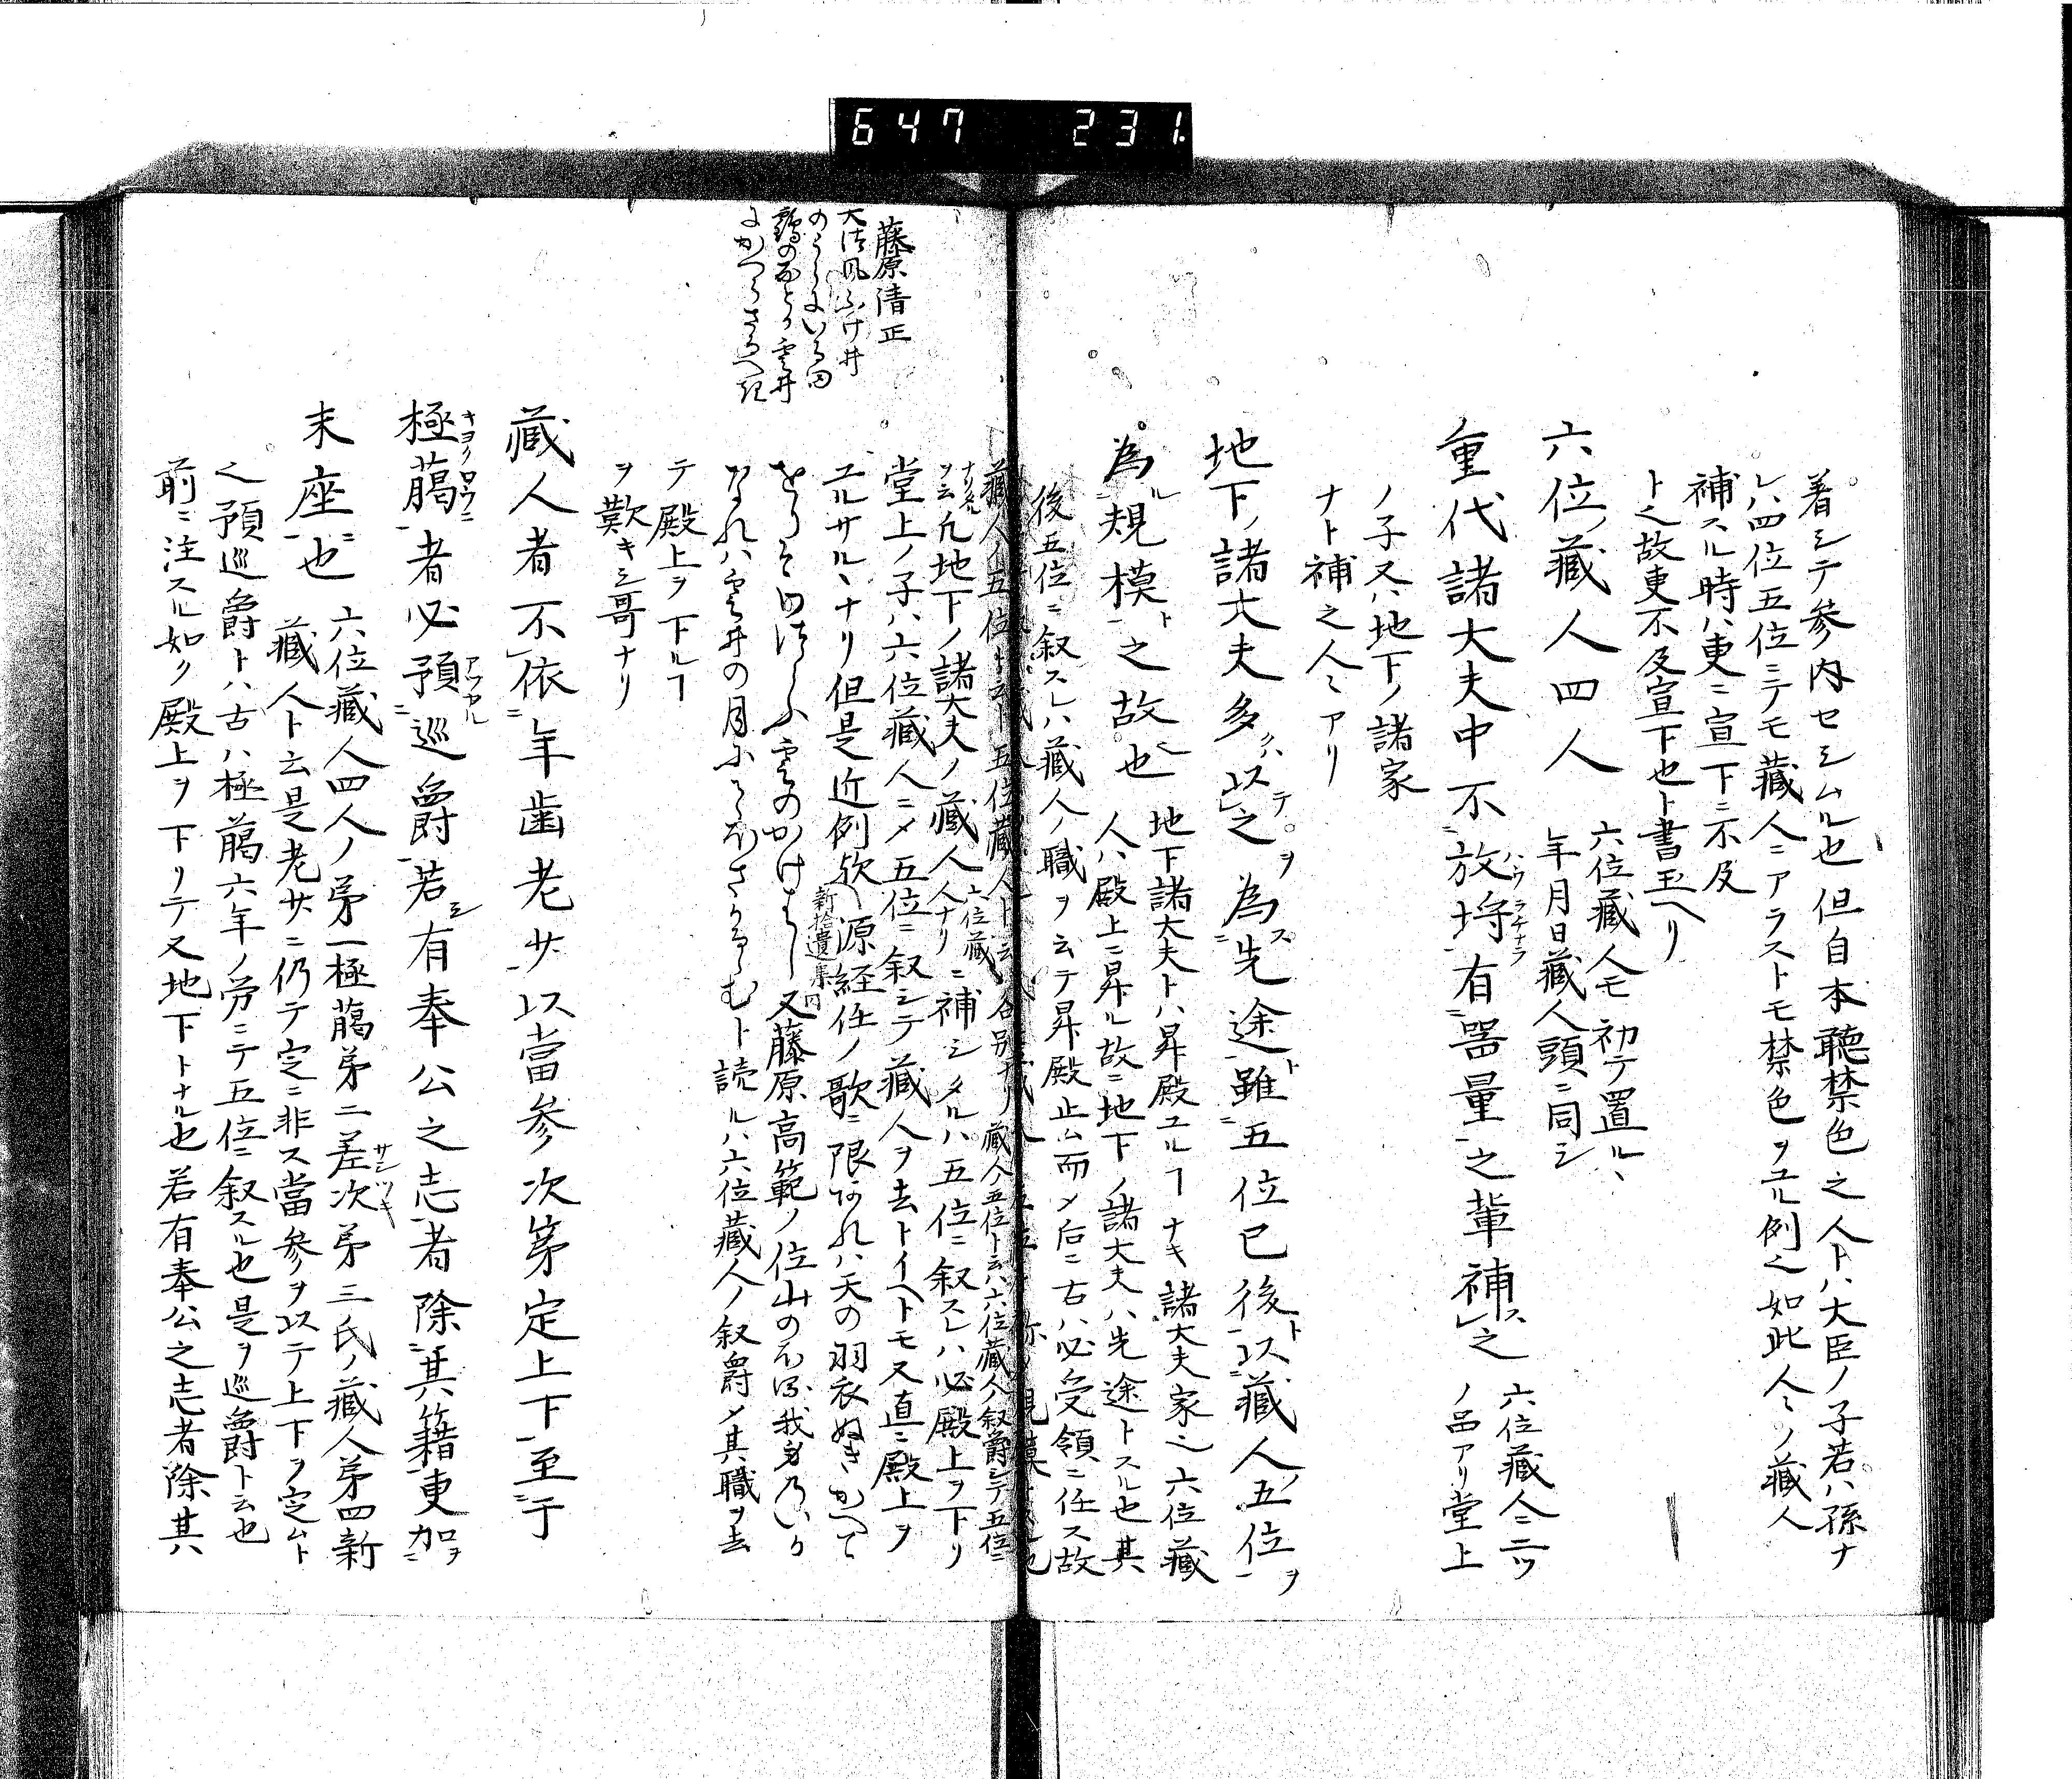 647 231.
着シテ参内セシムル也但自本聴禁色之人トハ大臣ノ子若ハ孫ナ
レハ四位五位ニテモ蔵人ニアラストモ禁色ヲユル例之如此人々ノ蔵人
補スル時ハ更ニ宣下ニ不及
ト之故更不及宣下也ト書玉ヘリ
六位ノ蔵人四人
六位蔵人モ初テ置ル丶
年月日蔵人頭ニ同シ
重代諸大夫中不放埒有器量之輩補之
六位蔵人ニ二ツ
ノ品アリ堂上
ノ子又ハ地下ノ諸家
ナト補之人々アリ
地下ノ諸大夫多以之為先途雖五位已後以蔵人五位ヲ
為規模之故也
地下諸大夫トハ昇殿ユルヿナキ諸大夫家之六位蔵
人ハ殿上ニ昇ル故ニ地下ノ諸大夫ハ先途トスル也其
後五位ニ叙スレハ蔵人ノ職ヲ云テ昇殿止ム而メ后ニ古ハ必受領ニ任ス故
藤原清正
天津風ふけ井
のうらにいる田
鶴のなとか雲井
にかへらさるへき
蔵人ノ五位ト云ト五位蔵人ト云各別ナリ蔵人五位ト云ハ六位蔵人ノ叙爵シテ五位ニ
ナリタルヲ云凡地下ノ諸大夫ノ蔵人六位蔵人ナリニ補シタルハ五位ニ叙スレハ必殿上ヲ下リ
堂上ノ子ハ六位蔵人ニメ五位ニ叙シテ蔵人ヲ去トイヘトモ又直ニ殿上ヲ
ユルサル丶ナリ但是近例歟源経任ノ歌ニ限あれハ天の羽衣ぬきかへて
新拾遺集
をりそわつらふ雲のかけはし又藤原高範ノ位山のほる我身乃いか
なれハ雲井の月にとほさかるらむト読ルハ六位蔵人ノ叙爵メ其職ヲ去
テ殿上ヲ下ルヿ
ヲ歎キシ哥ナリ
蔵人者不依年歯老少以當参次第定上下至于
極﨟者必預巡爵若有奉公之志者除其籍更加
末座也
六位蔵人四人ノ第一極﨟第二差次第三氏ノ蔵人第四新
蔵人ト云是老少ニ仍テ定ニ非ス當参ヲ以テ上下ヲ定ムト
之預巡爵トハ古ハ極﨟六年ノ労ニテ五位ニ叙スル也是ヲ巡爵ト云也
前ニ注スル如ク殿上ヲ下リテ又地下トナル也若有奉公之志者除其